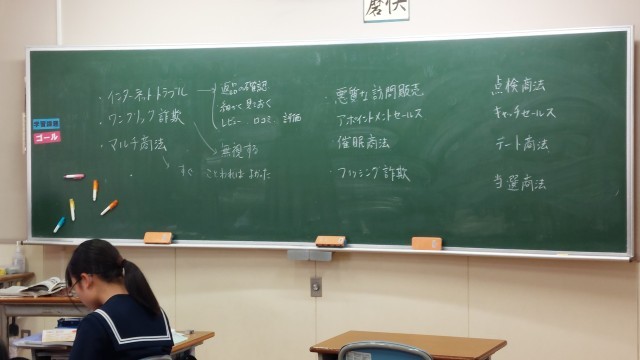 ・インターネットトラブル → 返品の確認
細かく見ておく
レビュー、口コミ、評価
・ワンクリック詐欺
無視する
・マルチ商法
すぐ ことわれば よかった
・
・悪質な訪問販売
アポイントメントセールス
催眠商法
・フィッシング詐欺
点検商法
キャッチセールス
デート商法
当選商法
学習課題
ゴール